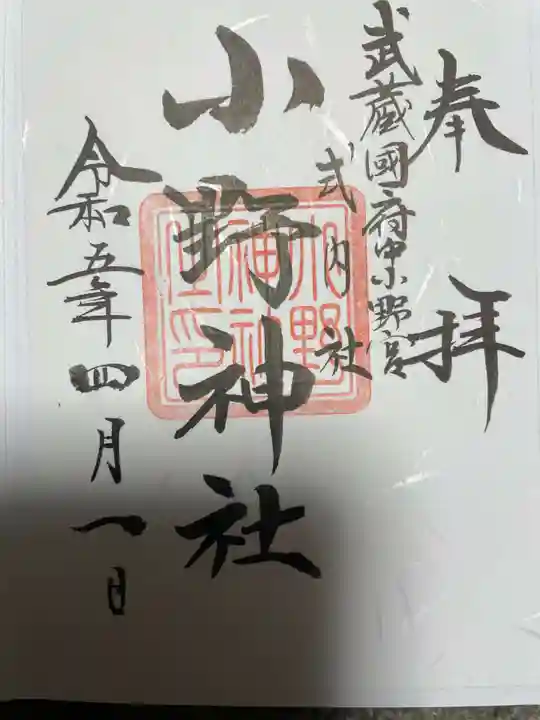 奉拝
武蔵國府中小野宮
式内社
小野神社
令和五年四月一日
小野
神社
之印